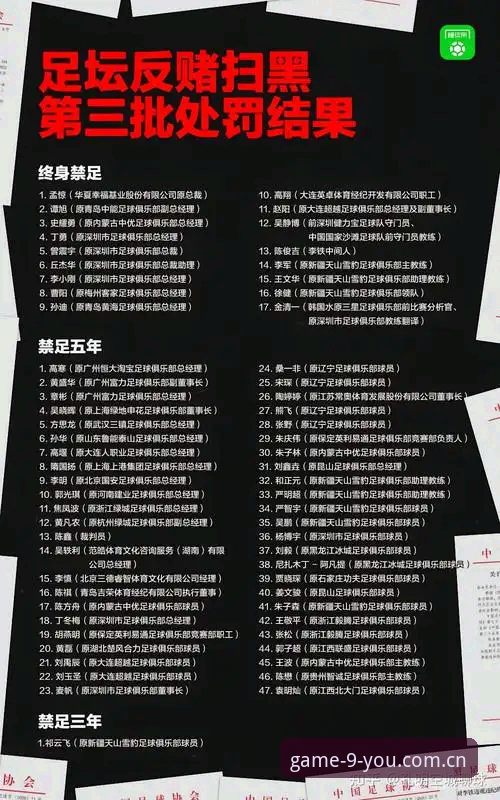 足坛反赌扫黑
第三批处罚结果
终身禁足
1. 孟惊（华夏幸福基业股份有限公司原总裁）
2. 谭旭（原青岛中能足球俱乐部副总经理）
3. 史耀勇（原内蒙古中优足球俱乐部总经理）
4. 丁勇（原深圳市足球俱乐部总经理）
5. 曾震宇（原深圳市足球俱乐部总裁）
6. 丘杰华（原深圳市足球俱乐部总裁助理）
7. 李小刚（原深圳市足球俱乐部总经理）
8. 曹阳（原梅州客家足球俱乐部总经理）
9. 孙迪（原青岛黄海足球俱乐部总经理）
10. 高翔（大连英卓体育经纪开发有限公司职工）
11. 赵阳（原大连超越足球俱乐部总经理及副董事长）
12. 吴静博（前深圳健力宝足球队守门员、
中国国家沙滩足球队前守门员教练）
13. 陈俊吉（李铁中间人）
14. 李军（原新疆天山雪豹足球俱乐部主教练）
15. 王文华（原新疆天山雪豹足球俱乐部助理教练）
16. 徐健（原新疆天山雪豹足球俱乐部领队）
17. 金清一（韩国水原三星足球俱乐部前比赛分析官、
原深圳市足球俱乐部教练翻译）
禁足五年
1. 高寒（原广州恒大淘宝足球俱乐部总经理）
2. 黄盛华（原广州富力足球俱乐部副董事长）
3. 章彬（原广州富力足球俱乐部总经理）
4. 吴晓晖（原上海绿地申花足球俱乐部董事长）
5. 方思龙（原武汉三镇足球俱乐部总经理）
6. 孙华（原山东鲁能泰山足球俱乐部总经理）
7. 高堰（原大连人职业足球俱乐部总经理）
8. 隋国扬（原上海上港集团足球俱乐部总经理）
9. 李明（原北京国安足球俱乐部总经理）
10. 郭光琪（原河南建业足球俱乐部总经理）
11. 焦凤波（原浙江绿城足球俱乐部总经理）
12. 黄凡农（原杭州绿城足球俱乐部副总经理）
13. 陈鑫（裁判员）
14. 吴轶利（范皓体育文化咨询服务（湖南）有限
公司总经理）
15. 李慎（北京三德睿智体育文化有限公司经理）
16. 陈祺（青岛吉荣体育经纪有限公司执行董事）
17. 陈方舟（原内蒙古中优足球俱乐部球员）
18. 丁冬梅（原深圳市足球俱乐部总经理）
19. 胡燕明（原保定英利易通足球俱乐部竞赛部职工）
20. 黄磊（原湖北楚风合力足球俱乐部球员）
21. 刘禹辰（原大连超越足球俱乐部球员）
22. 刘玉圣（原大连超越足球俱乐部球员）
23. 麦帆（原深圳市足球俱乐部董事长）
24. 桑一非（原辽宁足球俱乐部球员）
25. 宋琛（原辽宁足球俱乐部球员）
26. 陶婷婷（原江苏常奥体育发展股份有限公司董事长）
27. 熊飞（原辽宁足球俱乐部球员）
28. 张野（原辽宁足球俱乐部球员）
29. 朱庆伟（原保定英利易通足球俱乐部竞赛部负责人）
30. 朱子林（原内蒙古中优足球俱乐部球员）
31. 刘鑫垚（原昆山足球俱乐部总经理）
32. 和正元（原新疆天山雪豹足球俱乐部助理教练）
33. 严明超（原新疆天山雪豹足球俱乐部助理教练）
34. 严智宇（原新疆天山雪豹足球俱乐部球员）
35. 吴鹏（原新疆天山雪豹足球俱乐部球员）
36. 杨博宇（原深圳市足球俱乐部球员）
37. 刘毅（原黑龙江冰城足球俱乐部球员）
38. 尼扎木丁 – 阿凡提（原黑龙江冰城足球俱乐部球员）
39. 贾晓琛（原石家庄功夫足球俱乐部球员）
40. 姜文骏（原昆山足球俱乐部球员）
41. 朱子森（原新疆天山雪豹足球俱乐部球员）
42. 王敬平（原浙江毅腾足球俱乐部球员）
43. 张松（原浙江毅腾足球俱乐部球员）
44. 郭子超（原江西联盛足球俱乐部球员）
45. 王波（原内蒙古中优足球俱乐部主教练）
46. 陈懋（原贵州智诚足球俱乐部主教练）
47. 袁明灿（原江西北大门足球俱乐部球员）
禁足三年
1.祁云飞（原新疆天山雪豹足球俱乐部球员）
game-9-you.com.cn
中国足球协会